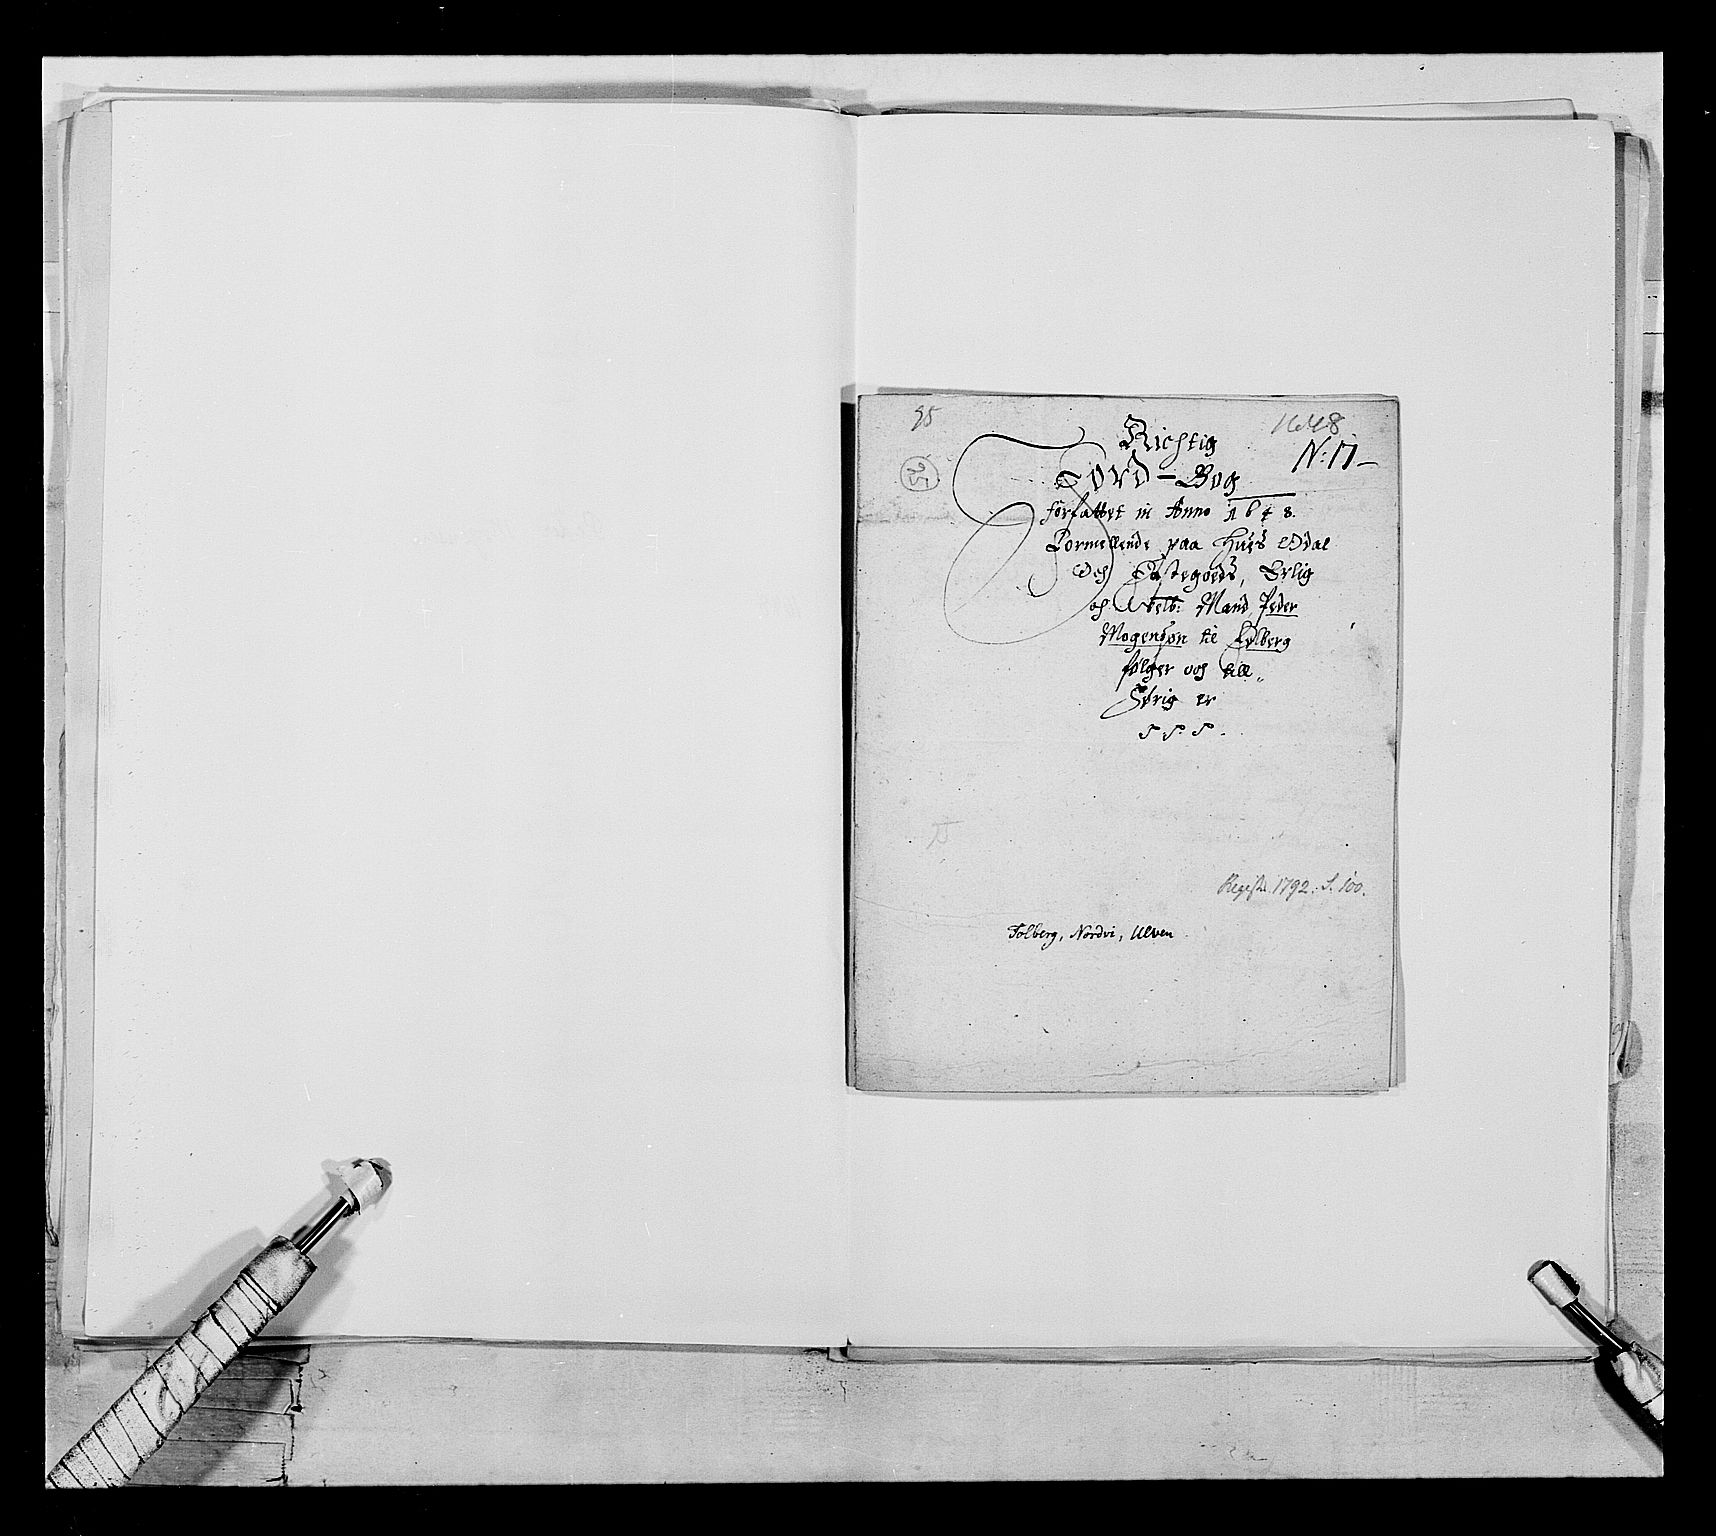 95
1648
Richtig
N: 17
25
Jord-Bog
forfattet in Anno 1648.
Formellende paa Huis Odal
Och Ostegoeds, Erlig
och Velb: Mand Peder
Mogensøn til Folberg
følger och till„
Hørig er
Registr. 1792. S. 100.
Folberg, Nordvi, Ulven